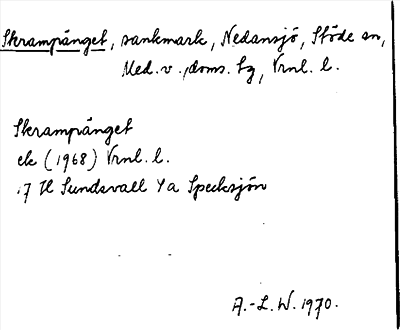 Skrampänget, sankmark, Nedansjö, Stöde sn,
Med. v. doms. tg, Vrnl. l.
Skrampänget
ek (1968) Vrnl. l.
17 H Sundsvall 4a Specksjön
A.-L. W. 1970.